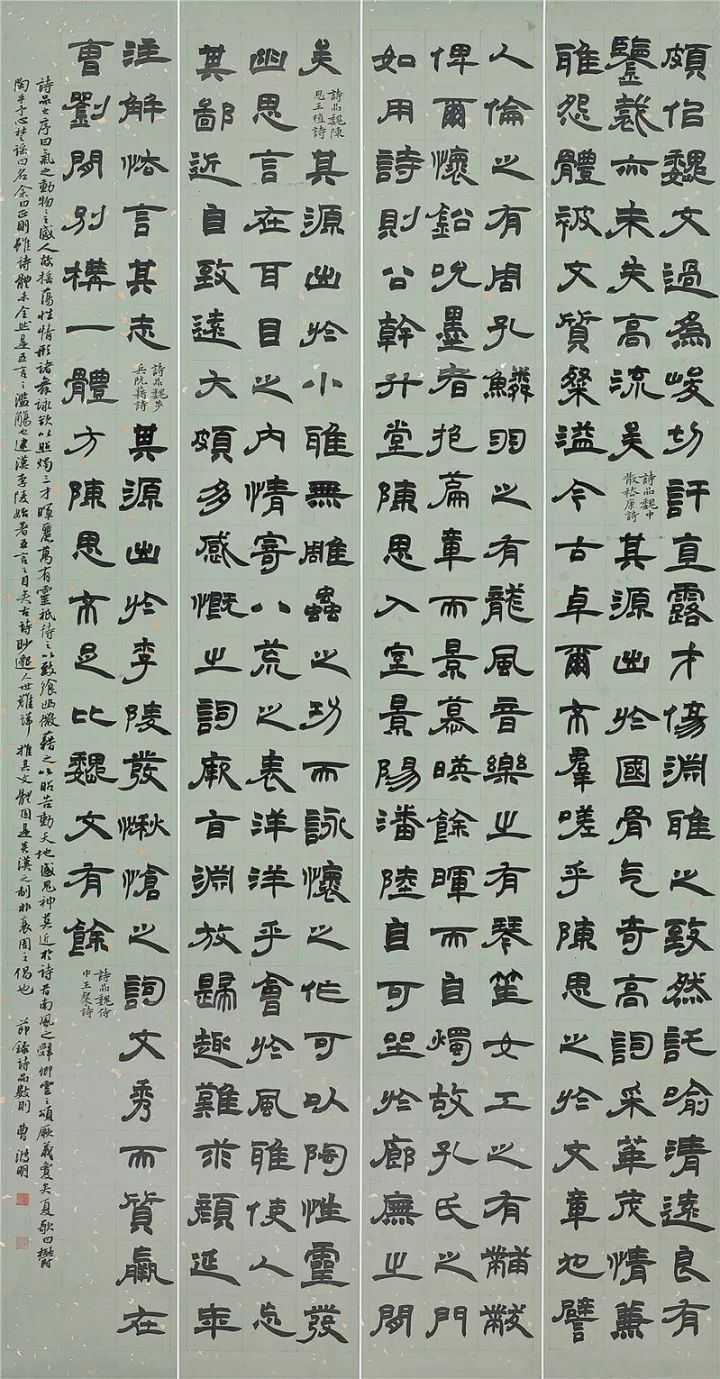 頗似魏文過為峻切訐直露才傷淵雅之致然託喻清遠良有
鑒裁亦未失高流矣 詩品魏中散嵇康詩 其源出於國骨气奇高詞采華茂情兼
雅怨體被文質粲溢今古卓爾不羣嗟乎陳思之於文章也譬
人倫之有周孔鱗羽之有龍風音樂之有琴笙女工之有黼黻
俾爾懷鉛吮墨者抱篇章而景慕暎餘暉而自燭故孔氏之門
如用詩則公幹升堂陳思入室景陽潘陸自可坐於廊廡之間
矣 詩品魏陳思王植詩 其源出於小雅無雕蟲之功而詠懷之作可以陶性靈發
幽思言在耳目之内情寄八荒之表洋洋乎會於風雅使人忘
其鄙近自致遠大頗多感慨之詞厥旨淵放歸趣難求顏延年
注解怯言其志 詩品魏步兵阮籍詩 其源出於李陵發愀愴之詞文秀而質羸在
曹劉間別構一體方陳思不足比魏文有餘 詩品魏侍中王粲詩
詩品之序曰氣之動物物之感人故搖蕩性情形諸舞詠欲以照燭三才暉麗萬有靈祇待之以致饗幽微藉之以昭告動天地感鬼神莫近於詩昔南風之辭卿雲之頌厥義夐矣夏歌曰鬱
陶乎予心楚謠曰名余曰正則雖詩體未全然是五言之濫觴也逮漢李陵始著五言之目矣古詩眇邈人世難詳推其文體固是炎漢之制非衰周之倡也 節錄詩品數則 曹明